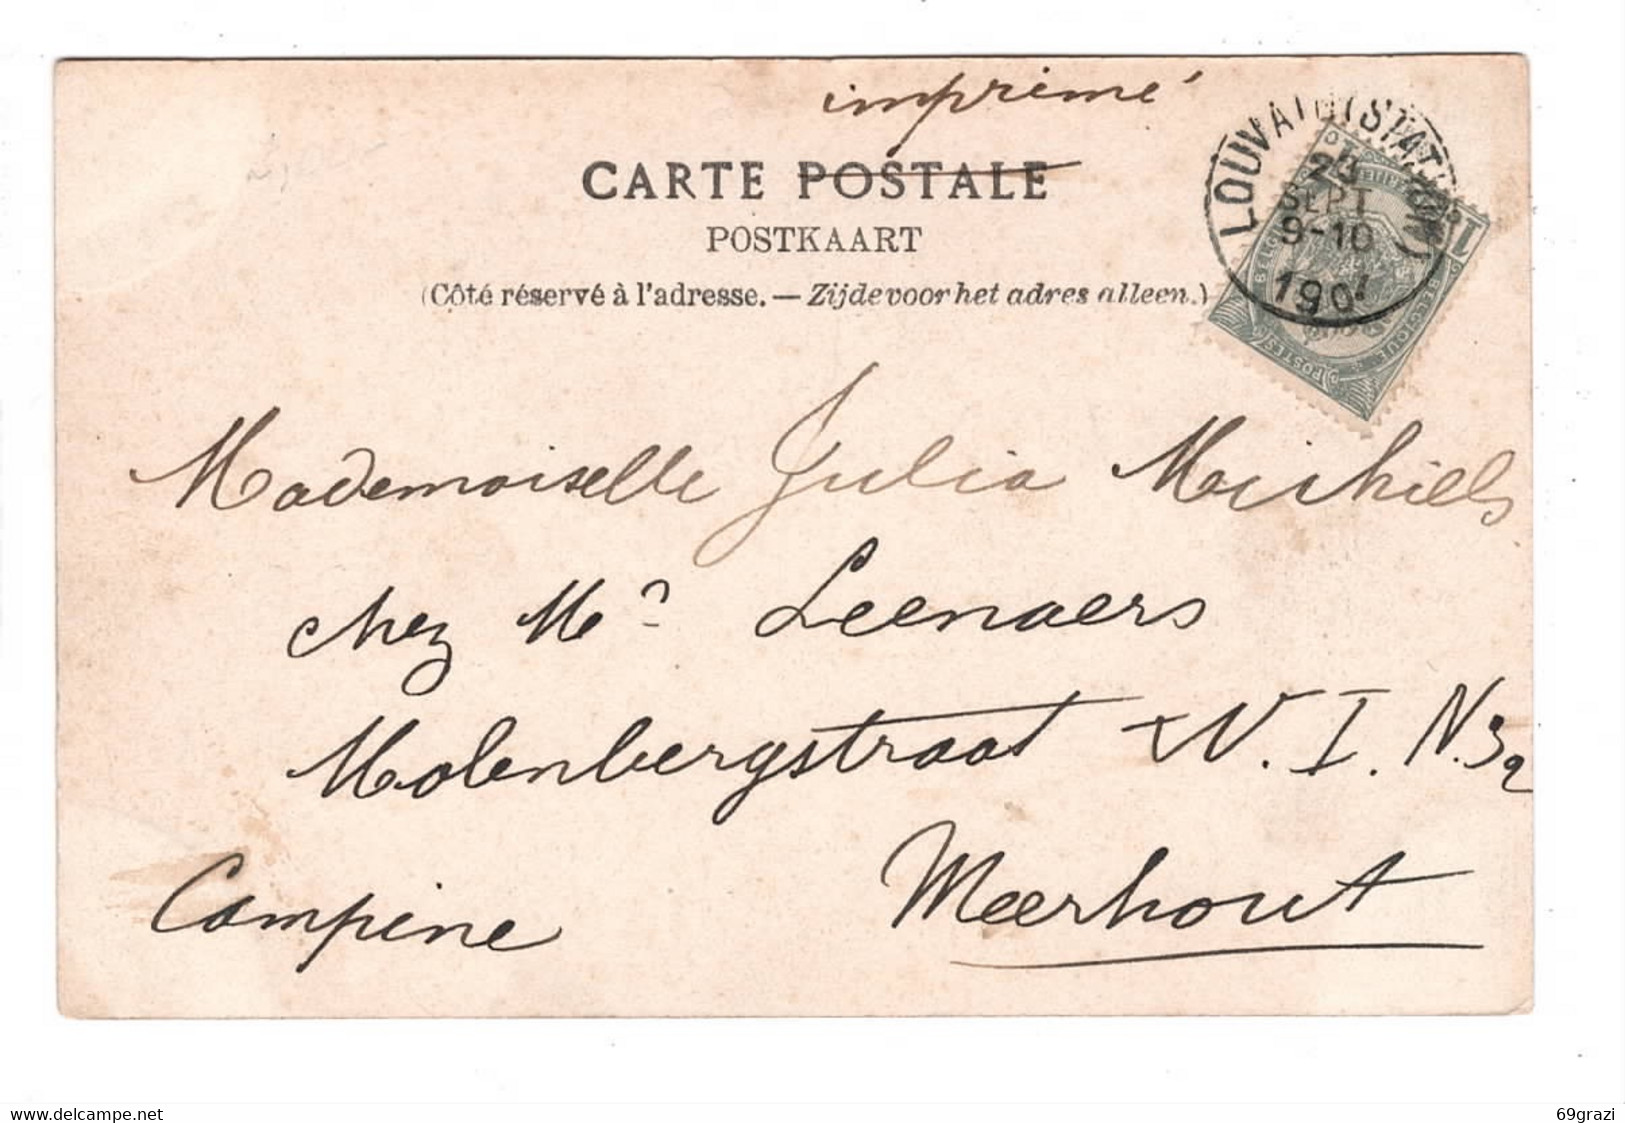 imprimé
CARTE POSTALE
POSTKAART
(Côté réservé à l'adresse. — Zijde voor het adres alleen.)
LOUVAIN (STATION)
SEPT
9-10
190
1
POSTES BELGIQUE
Mademoiselle Julia Michiels
chez Mr Leenaers
Molenbergstraat W. I. N. 32
Meerhout
Campine
www.delcampe.net
69grazi